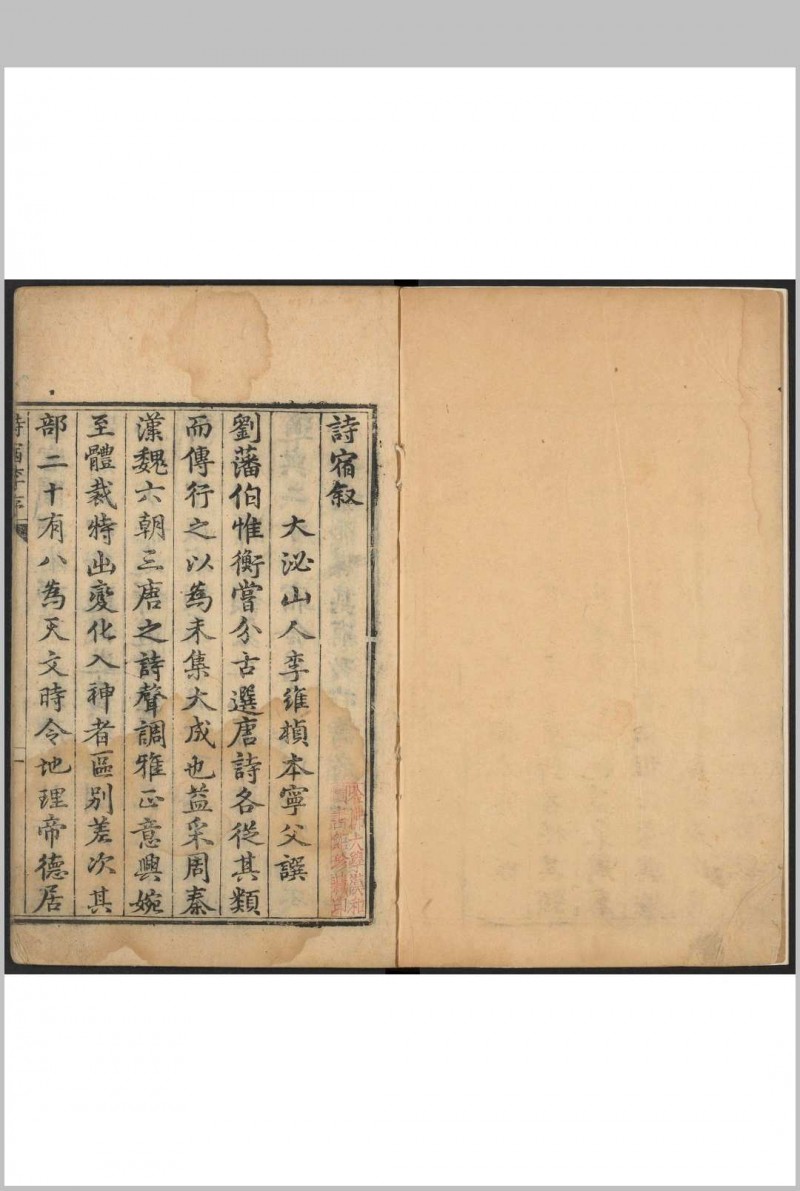 詩宿叙
大泌山人李維楨本寧父譔
劉藩伯惟衡嘗分古選唐詩各從其類
而傳行之以為未集大成也益采周秦
漢魏六朝三唐之詩聲調雅正意興婉
至體裁特出變化入神者區別差次其
部二十有八為天文時令地理帝德居
詩宿李序
一